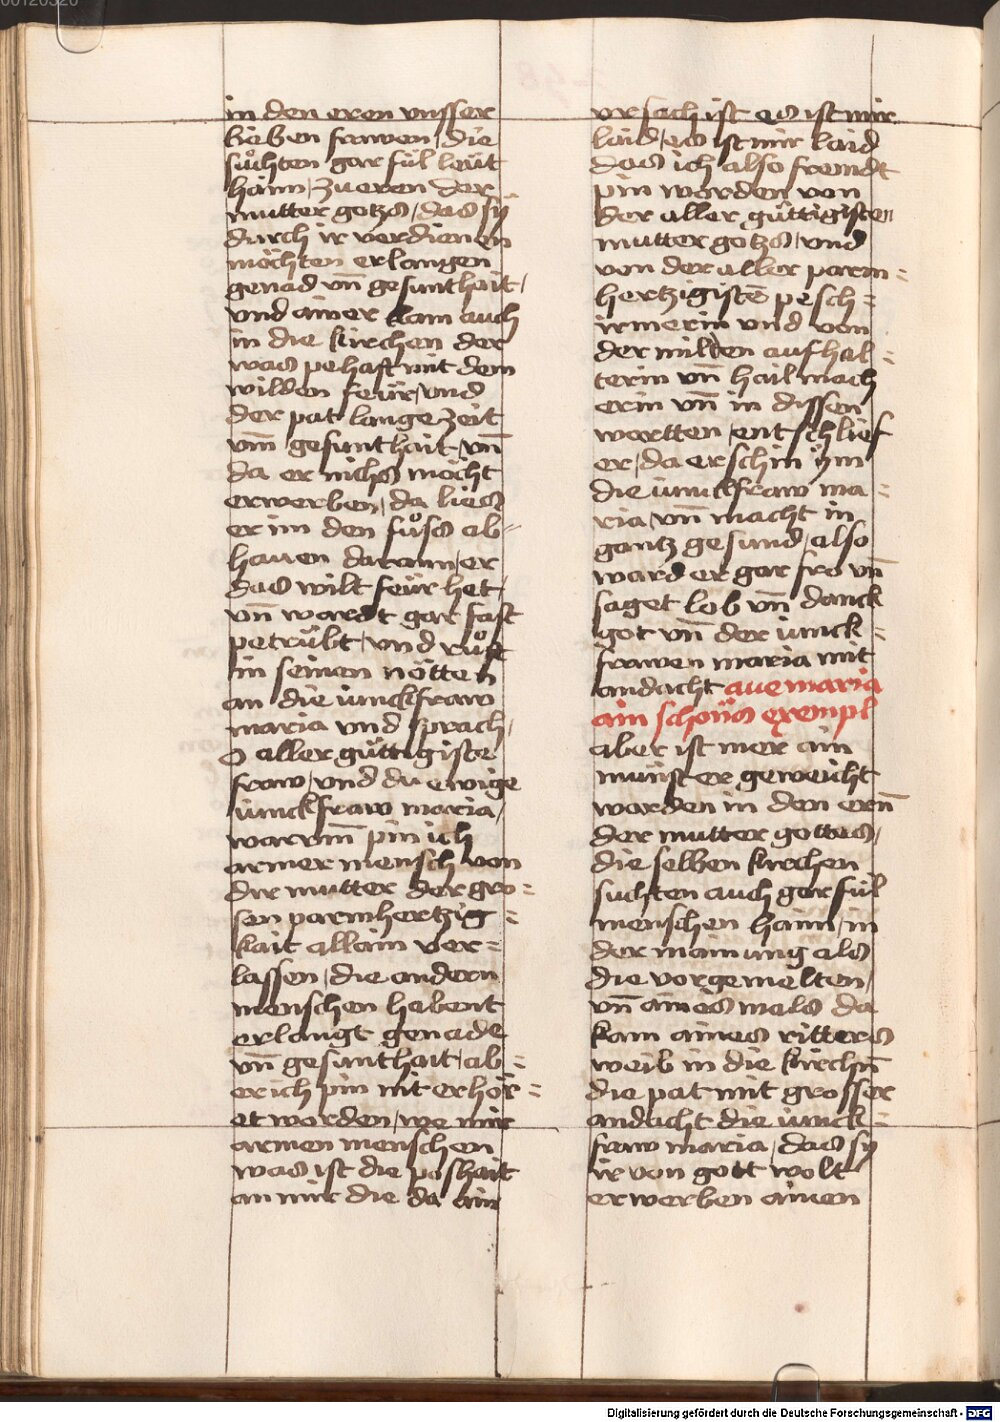 in den eren vnsser
lieben frawen / die
suͦchten gar fül leüt
haim / zu eren der
mutter gotzs / das sÿ
durch ir verdienen
möchten erlangen
genad vn̄ gesunthait /
vnd ainer kam auch
in die kirchen der
was pehaft mit dem
wilden feür / vnd
der pat lange zeit
vm̄ gesunthait / vn̄
da er nichs möcht
erwerben / da lies
er im den fuͦss ab-
hauen darann / er
das wilt feür het /
vn̄ wardt gar fast
petrübt / vnd ruͦft
in seinen nötten
an die iunckfraw
maria vnd sprach /
O aller güttigiste
fraw / vnd du ewige
iunckfraw maria /
warvm̄ pin ich
armer mensch von
dir mutter der gro=
sen parmhertzig=
kait allain ver=
lassen / die andern
menschen habent
erlangt genade
vn̄ gesunthait / ab=
er ich pin nit erhör=
et worden / we mir
armen menschen
was ist die poshait
an mir die da ain
vrsach ist es ist mir
laid / es ist mir laid
das ich also fremdt
pin worden von
der aller güttigisten
mutter gotzs / vnd
von der aller parm=
hertzigistē pesch=
irmerin vnd von
der milden aufhal=
terin vn̄ hail mach
erin vn̄ in dissen
wortten / entschlief
er / da erschin ÿm
die iunckfraw ma=
ria / vn̄ macht in
gantz gesund / also
ward er gar fro vn̄
saget lob vn̄ danck
got vn̄ der iunck=
frawen maria mit
andacht aue maria
ain schöns exempl
aber ist mer ain
münster geweicht
worden in den ern̄
der mutter gottes /
die selben kirchen
suchten auch gar fül
menschen haim / in
der mainung als
die vorgemelten /
vn̄ aines mals da
kam aines ritters
weib in die kirchn̄
die pat mit grosser
andacht die iunck=
fraw maria / das sÿ
ir von gott wolt
erwerben ainen
Digitalisierung gefördert durch die Deutsche Forschungsgemeinschaft - DFG